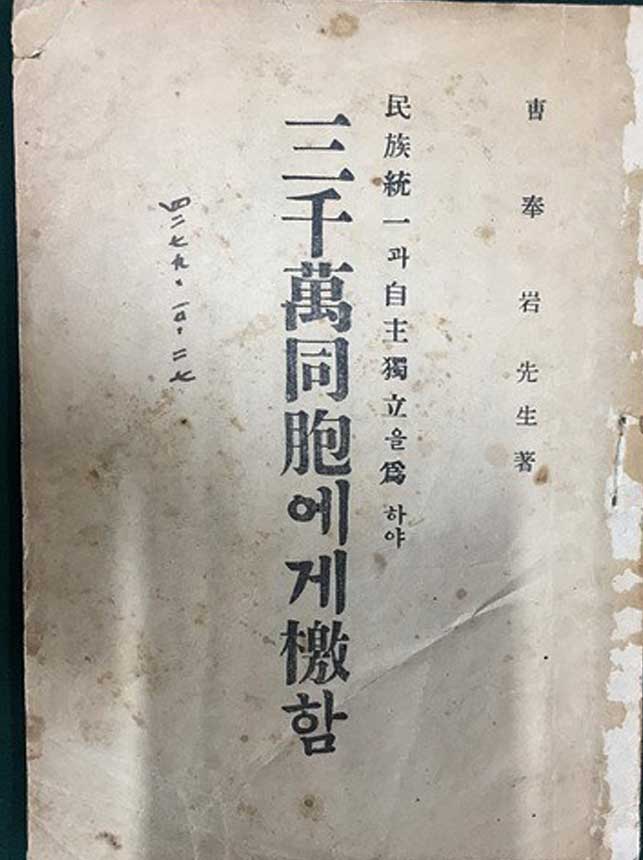 曺奉岩先生著
民族統一과自主獨立을爲하야
三千萬同胞에게檄함
四二七九.一〇.二七